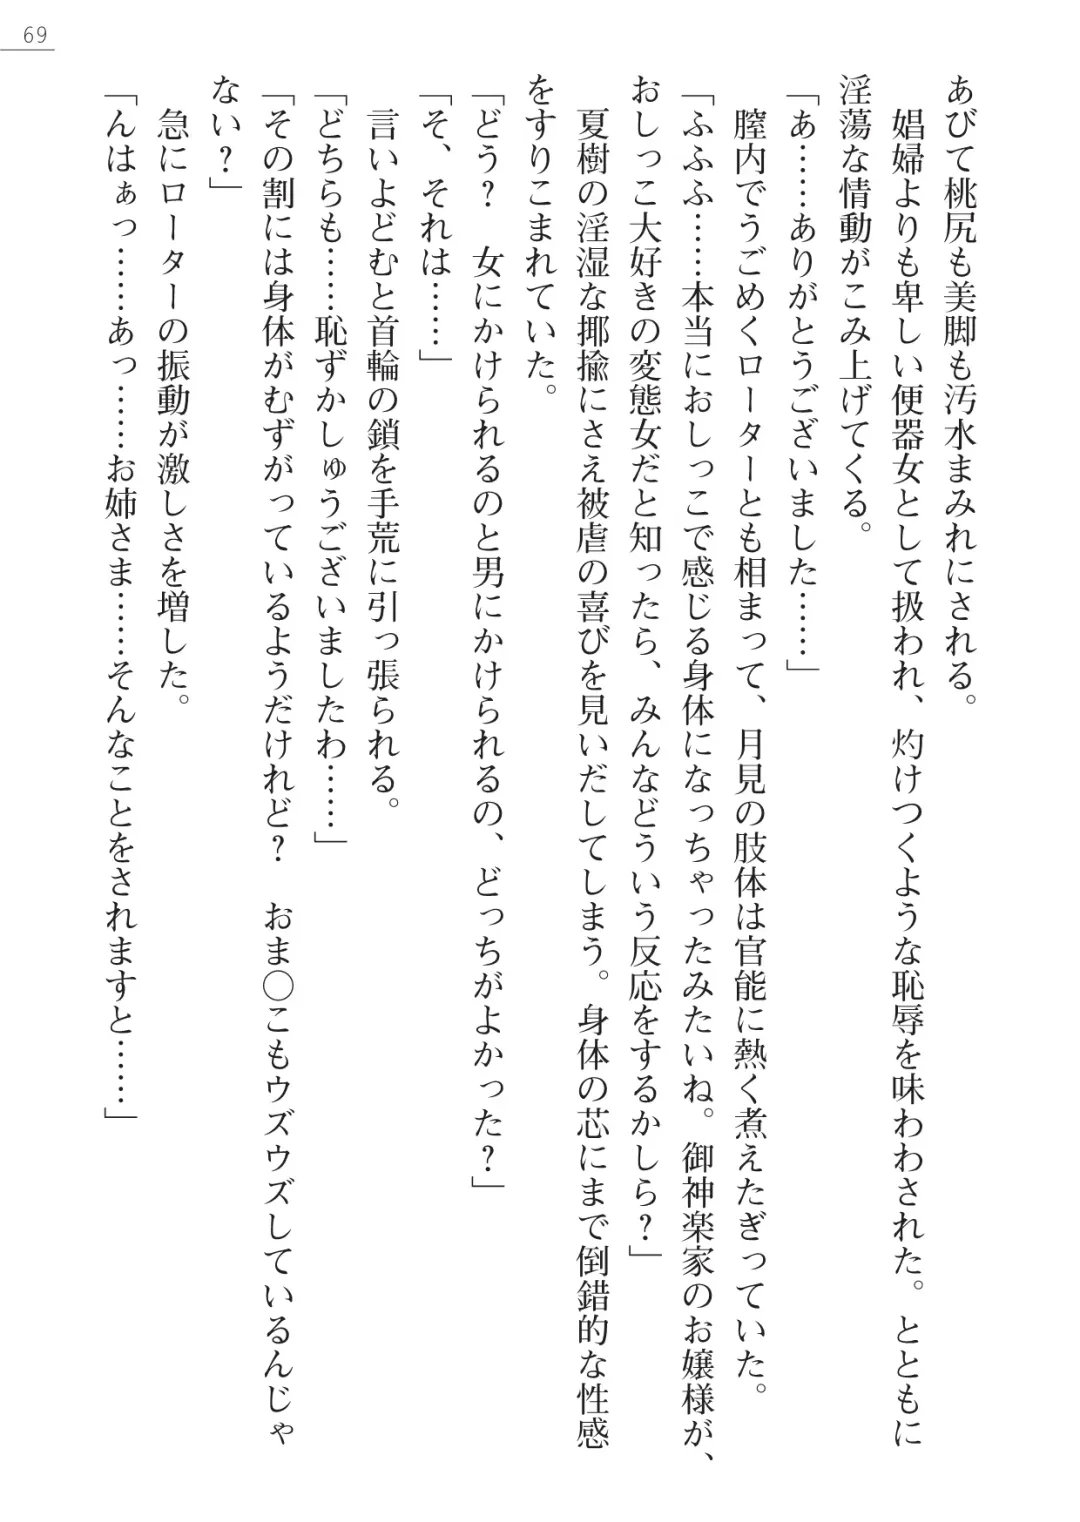 69
あびて桃尻も美脚も汚水まみれにされる。
　娼婦よりも卑しい便器女として扱われ、灼けつくような恥辱を味わわされた。とともに
淫蕩な情動がこみ上げてくる。
「あ……ありがとうございました……」
　膣内でうごめくローターとも相まって、月見の肢体は官能に熱く煮えたぎっていた。
「ふふふ……本当におしっこで感じる身体になっちゃったみたいね。御神楽家のお嬢様が、
おしっこ大好きの変態女だと知ったら、みんなどういう反応をするかしら？」
　夏樹の淫湿な揶揄にさえ被虐の喜びを見いだしてしまう。身体の芯にまで倒錯的な性感
をすりこまれていた。
「どう？　女にかけられるのと男にかけられるの、どっちがよかった？」
「そ、それは……」
　言いよどむと首輪の鎖を手荒に引っ張られる。
「どちらも……恥ずかしゅうございましたわ……」
「その割には身体がむずがっているようだけれど？　おま〇こもウズウズしているんじゃ
ない？」
　急にローターの振動が激しさを増した。
「んはぁっ……あっ……お姉さま……そんなことをされますと……」